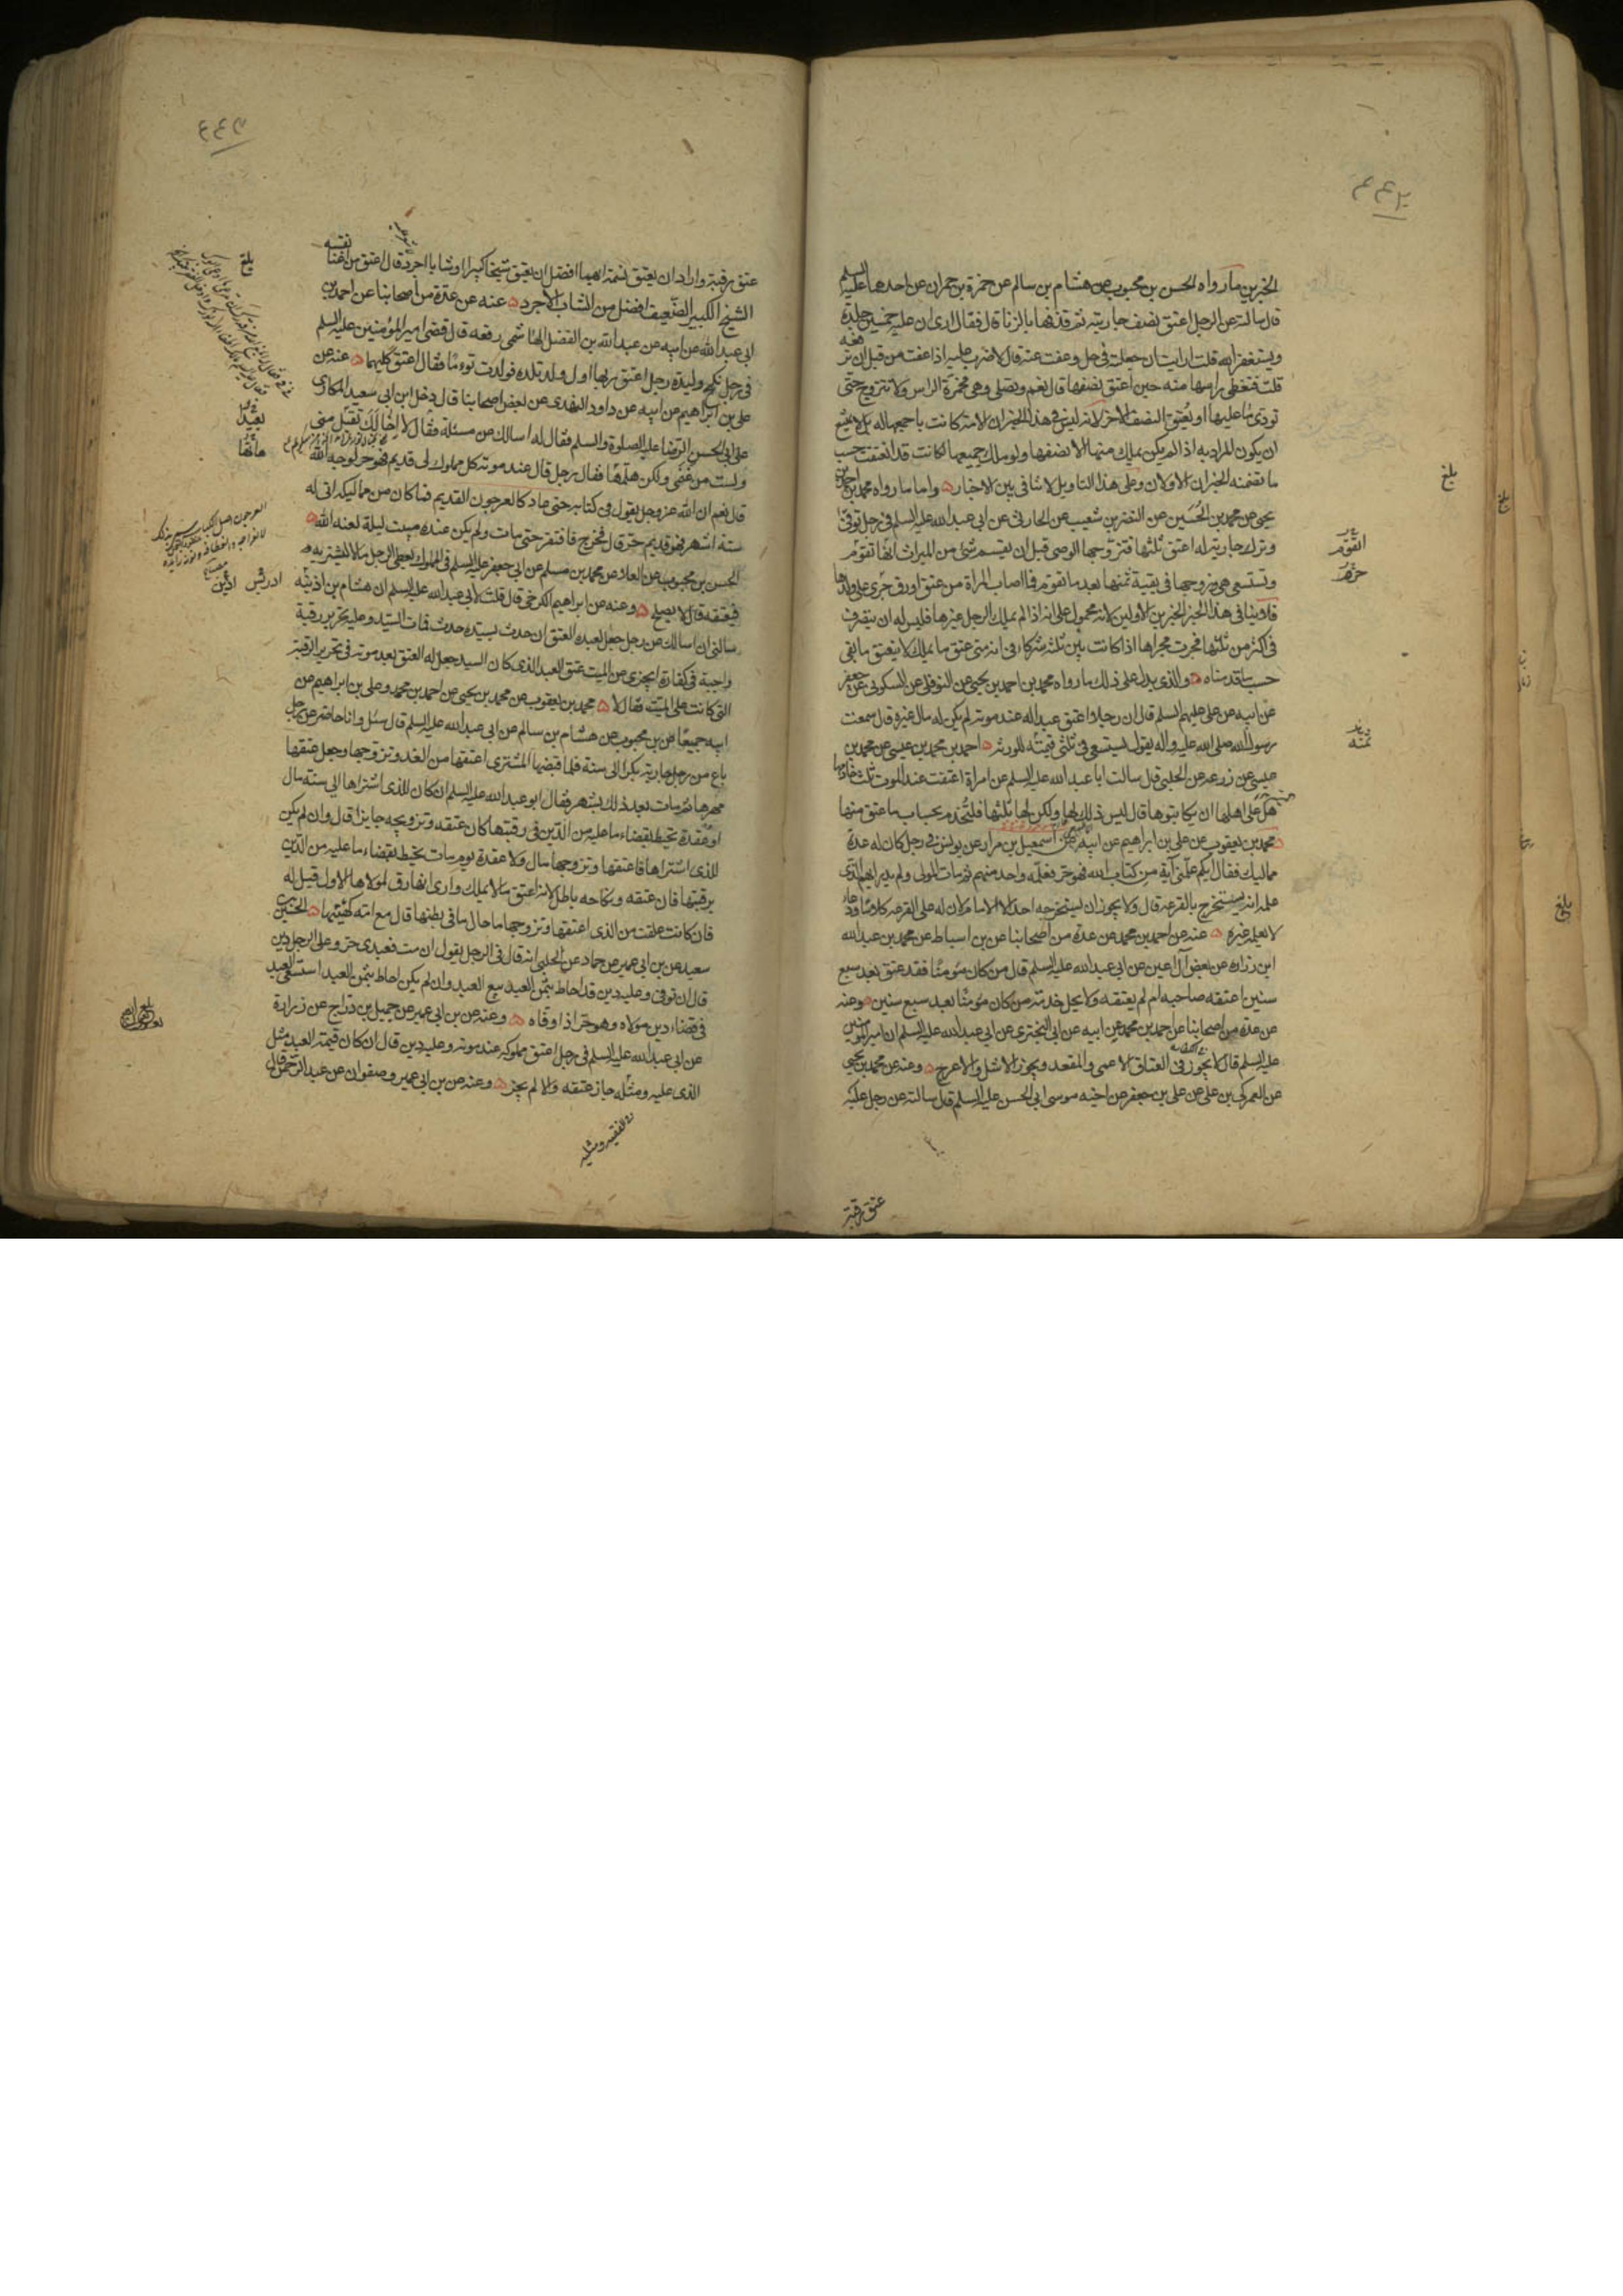 الخبرين ما رواه الحسن بن محبوب عن هشام بن سالم عن حمزة بن حمران عن احدهما عليه السلم
قال سالته عن الرجل اعتق نصف جاريته ثم قذفها بالزنا قال فقال ارى ان عليه خمسين جلدة
ويستغفر الله قلت ارايت ان جعلته في حل وعفت عنه قال لا ضرب عليه اذا عفت من قبل ان ترفعه
قلت فتغطى راسها منه حين اعتق نصفها قال نعم وتصلى وهى مخمرة الراس ولا تتزوج حتى
تودى ما عليها او يعتق النصف الاخر لانه ليس في هذا الخبر ان الامة كانت باجمعها له بل لا يمتنع
ان يكون المراد به اذا لم يكن يملك منها الا نصفها ولو ملك جميعها لكانت قد انعتقت حسب
ما تضمنه الخبران الاولان وعلى هذا التاويل لا تنافى بين الاخبار واما ما رواه محمد بن احمد بن
يحيى عن محمد بن الحسين عن النضر بن شعيب عن الحارثى عن ابي عبد الله عليه السلم في رجل توفى
وترك جارية له اعتق ثلثها فتزوجها الوصى قبل ان يقسم شئ من الميراث انها تقوم
وتستسعى هى وزوجها في بقية ثمنها بعد ما تقوم فما اصاب المراة من عتق او رق جرى على ولدها
فلا ينافى هذا الخبر الخبرين الاولين لانه محمول على انه اذا لم يملك الرجل غيرها فليس له ان يتصرف
في اكثر من ثلثها فجرت مجراها اذا كانت بين ثلثة شركاء في انه متى عتق ما يملك لا ينعتق ما بقى
حسب ما قدمناه والذى يدل على ذلك ما رواه محمد بن احمد بن يحيى عن النوفلى عن السكونى عن جعفر
عن ابيه عن على عليهم السلم قال ان رجلا اعتق عبدا له عند موته لم يكن له مال غيره قال سمعت
رسول الله صلى الله عليه واله يقول يستسعى في ثلثى قيمته للورثه احمد بن محمد بن عيسى عن محمد بن
عيسى عن زرعه عن الحلبى قال سالت ابا عبد الله عليه السلم عن امراة اعتقت عند الموت ثلث خادمها
هل على اهلها ان يكاتبوها قال ليس ذلك لها ولكن لها ثلثها فلتخدم بحساب ما عتق منها
محمد بن يعقوب عن على بن ابراهيم عن ابيه عن اسمعيل بن مرار عن يونس في رجل كان له عدة
مماليك فقال ايكم علمنى آية من كتاب الله فهو حر فعلمه واحد منهم ثم مات المولى ولم يدر ايهم الذى
علمه انه يستخرج بالقرعه قال ولا يجوز ان يستخرجه احد الا الامام لان له على القرعه كلاما ودعاء
لا يعلمه غيره عنه عن احمد بن محمد عن عدة من اصحابنا عن بن اسباط عن محمد بن عبد الله
ابن زراره عن بعض آل اعين عن ابي عبد الله عليه السلم قال من كان مؤمنا فقد عتق بعد سبع
سنين اعتقه صاحبه ام لم يعتقه ولا يحل خدمة من كان مؤمنا بعد سبع سنين وعنه
عن عدة من اصحابنا عن احمد بن محمد عن ابيه عن ابي البخترى عن ابي عبد الله عليه السلم ان امير المومنين
عليه السلم قال لا يجوز في العتاق الاعمى والمقعد ويجوز الاشل والاعرج وعنه عن محمد بن يحيى
عن العمركى بن على عن على بن جعفر عن اخيه موسى ابي الحسن عليه السلم قال سالته عن رجل عليه
عتق رقبة
بلغ
عتق رقبة واراد ان يعتق نسمة ايهما افضل ان يعتق شيخا كبيرا او شابا اجرد قال اعتق من اغنا نفسه
الشيخ الكبير الضعيف افضل من الشاب الاجرد عنه عن عدة من اصحابنا عن احمد بن
ابى عبد الله عن ابيه عن عبد الله بن الفضل الهاشمى رفعه قال قضى امير المؤمنين عليه السلم
في رجل نكح وليدة رجل اعتق ربها اول ولد تلده فولدت توءما فقال اعتق كليهما عنه عن
على بن ابراهيم عن ابيه عن داود النهدى عن بعض اصحابنا قال دخل ابن ابي سعيد المكارى
على ابي الحسن الرضا عليه الصلوة والسلم فقال له اسالك عن مسئلة فقال لا اخالك تقبل منى
ولست من غنمى ولكن هلمها فقال رجل قال عند موته كل مملوك لى قديم فهو حر لوجه الله
قال نعم ان الله عز وجل يقول في كتابه حتى عاد كالعرجون القديم فما كان من مماليكه اتى له
ستة اشهر فهو قديم حر قال فخرج فافتقر حتى مات ولم يكن عنده مبيت ليلة لعنه الله
الحسن بن محبوب عن العلا عن محمد بن مسلم عن ابي جعفر عليه السلم في المملوك يعطى الرجل مالا ليشتريه
فيعتقه قال لا يصلح وعنه عن ابراهيم الكرخى قال قلت لابي عبد الله عليه السلم ان هشام بن اذينه
سالنى ان اسالك عن رجل جعل لعبده العتق ان حدث بسيده حدث فمات السيد وعليه تحرير رقبة
واجبة في كفارة ايجزى عن الميت عتق العبد الذى كان السيد جعل له العتق بعد موته في تحرير الرقبة
التى كانت على الميت فقال لا محمد بن يعقوب عن محمد بن يحيى عن احمد بن محمد وعلى بن ابراهيم عن
ابيه جميعا عن بن محبوب عن هشام بن سالم عن ابي عبد الله عليه السلم قال سئل وانا حاضر عن رجل
باع من رجل جارية بكرا الى سنة فلما قبضها المشترى اعتقها من الغد وتزوجها وجعل عتقها
مهرها ثم مات بعد ذلك بشهر فقال ابو عبد الله عليه السلم ان كان للذى اشتراها الى سنة مال
او عقدة تحيط بقضاء ما عليه من الدين في رقبتها كان عتقه وتزويجه جايزا قال وان لم يكن
للذى اشتراها فاعتقها وتزوجها مال ولا عقدة يوم مات تحيط بقضاء ما عليه من الدين
برقبتها فان عتقه ونكاحه باطل لانه اعتق ما لا يملك وارى انها رق لمولاها الاول قيل له
فان كانت علقت من الذى اعتقها وتزوجها ما حال ما في بطنها قال مع امه كهيئتها الحسين بن
سعيد عن بن ابي عمير عن حماد عن الحلبى انه قال في الرجل يقول ان مت فعبدى حر وعلى الرجل دين
قال ان توفى وعليه دين قد احاط بثمن العبد بيع العبد وان لم يكن احاط بثمن العبد استسعى العبد
في قضاء دين مولاه وهو حر اذا اوفاه وعنه عن بن ابي عمير عن جميل بن دراج عن زرارة
عن ابي عبد الله عليه السلم في رجل اعتق مملوكه عند موته وعليه دين قال ان كان قيمة العبد مثل
الذى عليه ومثله جاز عتقه والا لم يجز وعنه عن بن ابي عمير وصفوان عن عبد الرحمن قال
بلغ